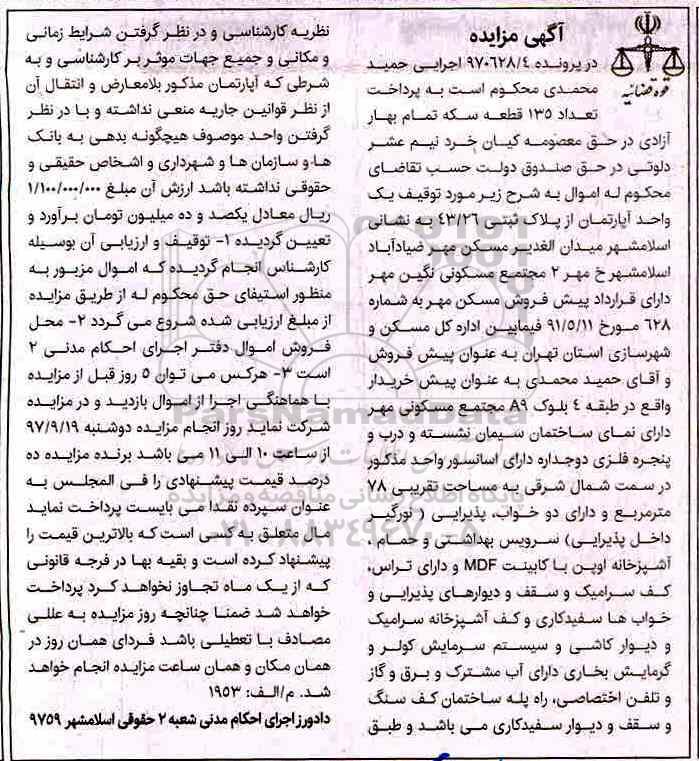 آگهی مزایده
قوه قضائیه
در پرونده ۹۷۰۶۲۸/٤ اجرایی حمید
محمدی محکوم است به پرداخت
تعداد ۱۳۵ قطعه سکه تمام بهار
آزادی در حق معصومه کیان خرد نیم عشر
دلوتی در حق صندوق دولت حسب تقاضای
محکوم له اموال به شرح زیر مورد توقیف یک
واحد آپارتمان از پلاک ثبتی ٤۳/۲٦ به نشانی
اسلامشهر میدان الغدیر مسکن مهر ضیادآباد
اسلامشهر خ مهر ۲ مجتمع مسکونی نگین مهر
دارای قرارداد پیش فروش مسکن مهر به شماره
٦۲۸ مورخ ۹۱/۵/۱۱ فیمابین اداره کل مسکن و
شهرسازی استان تهران به عنوان پیش فروش
و آقای حمید محمدی به عنوان پیش خریدار
واقع در طبقه ٤ بلوک A۹ مجتمع مسکونی مهر
دارای نمای ساختمان سیمان نشسته و درب و
پنجره فلزی دوجداره دارای آسانسور واحد مذکور
در سمت شمال شرقی به مساحت تقریبی ۷۸
مترمربع و دارای دو خواب، پذیرایی ( نورگیر
داخل پذیرایی) سرویس بهداشتی و حمام ،
آشپزخانه اوپن با کابینت MDF و دارای تراس،
کف سرامیک و سقف و دیوارهای پذیرایی و
خواب ها سفیدکاری و کف آشپزخانه سرامیک
و دیوار کاشی و سیستم سرمایش کولر و
گرمایش بخاری دارای آب مشترک و برق و گاز
و تلفن اختصاصی، راه پله ساختمان کف سنگ
و سقف و دیوار سفیدکاری می باشد و طبق
نظریه کارشناسی و در نظر گرفتن شرایط زمانی
و مکانی و جمیع جهات موثر بر کارشناسی و به
شرطی که آپارتمان مذکور بلامعارض و انتقال آن
از نظر قوانین جاریه منعی نداشته و با در نظر
گرفتن واحد موصوف هیچگونه بدهی به بانک
ها و سازمان ها و شهرداری و اشخاص حقیقی و
حقوقی نداشته باشد ارزش آن مبلغ ۱/۱۰۰/۰۰۰/۰۰۰
ریال معادل یکصد و ده میلیون تومان برآورد و
تعیین گردیده ۱- توقیف و ارزیابی آن بوسیله
کارشناس انجام گردیده که اموال مزبور به
منظور استیفای حق محکوم له از طریق مزایده
از مبلغ ارزیابی شده شروع می گردد ۲- محل
فروش اموال دفتر اجرای احکام مدنی ۲
است ۳- هرکس می توان ۵ روز قبل از مزایده
با هماهنگی اجرا از اموال بازدید و در مزایده
شرکت نماید روز انجام مزایده دوشنبه ۹۷/۹/۱۹
از ساعت ۱۰ الی ۱۱ می باشد برنده مزایده ده
درصد قیمت پیشنهادی را فی المجلس به
عنوان سپرده نقدا می بایست پرداخت نماید
مال متعلق به کسی است که بالاترین قیمت را
پیشنهاد کرده است و بقیه بها در فرجه قانونی
که از یک ماه تجاوز نخواهد کرد پرداخت
خواهد شد ضمنا چنانچه روز مزایده به عللی
مصادف با تعطیلی باشد فردای همان روز در
همان مکان و همان ساعت مزایده انجام خواهد
شد. م/الف: ۱۹۵۳
دادورز اجرای احکام مدنی شعبه ۲ حقوقی اسلامشهر ۹۷۵۹
ParsNamadData
پایگاه اطلاع رسانی مناقصه و مزایده
۰۲۱-۸۸۳٤۹٦۷۰-۵